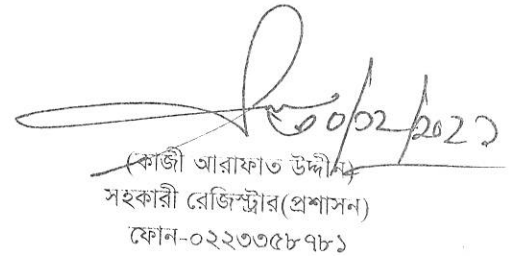 (কাজী আরাফাত উদ্দীন)
সহকারী রেজিস্ট্রার(প্রশাসন)
ফোন-০২২৩৩৫৮৭৮১